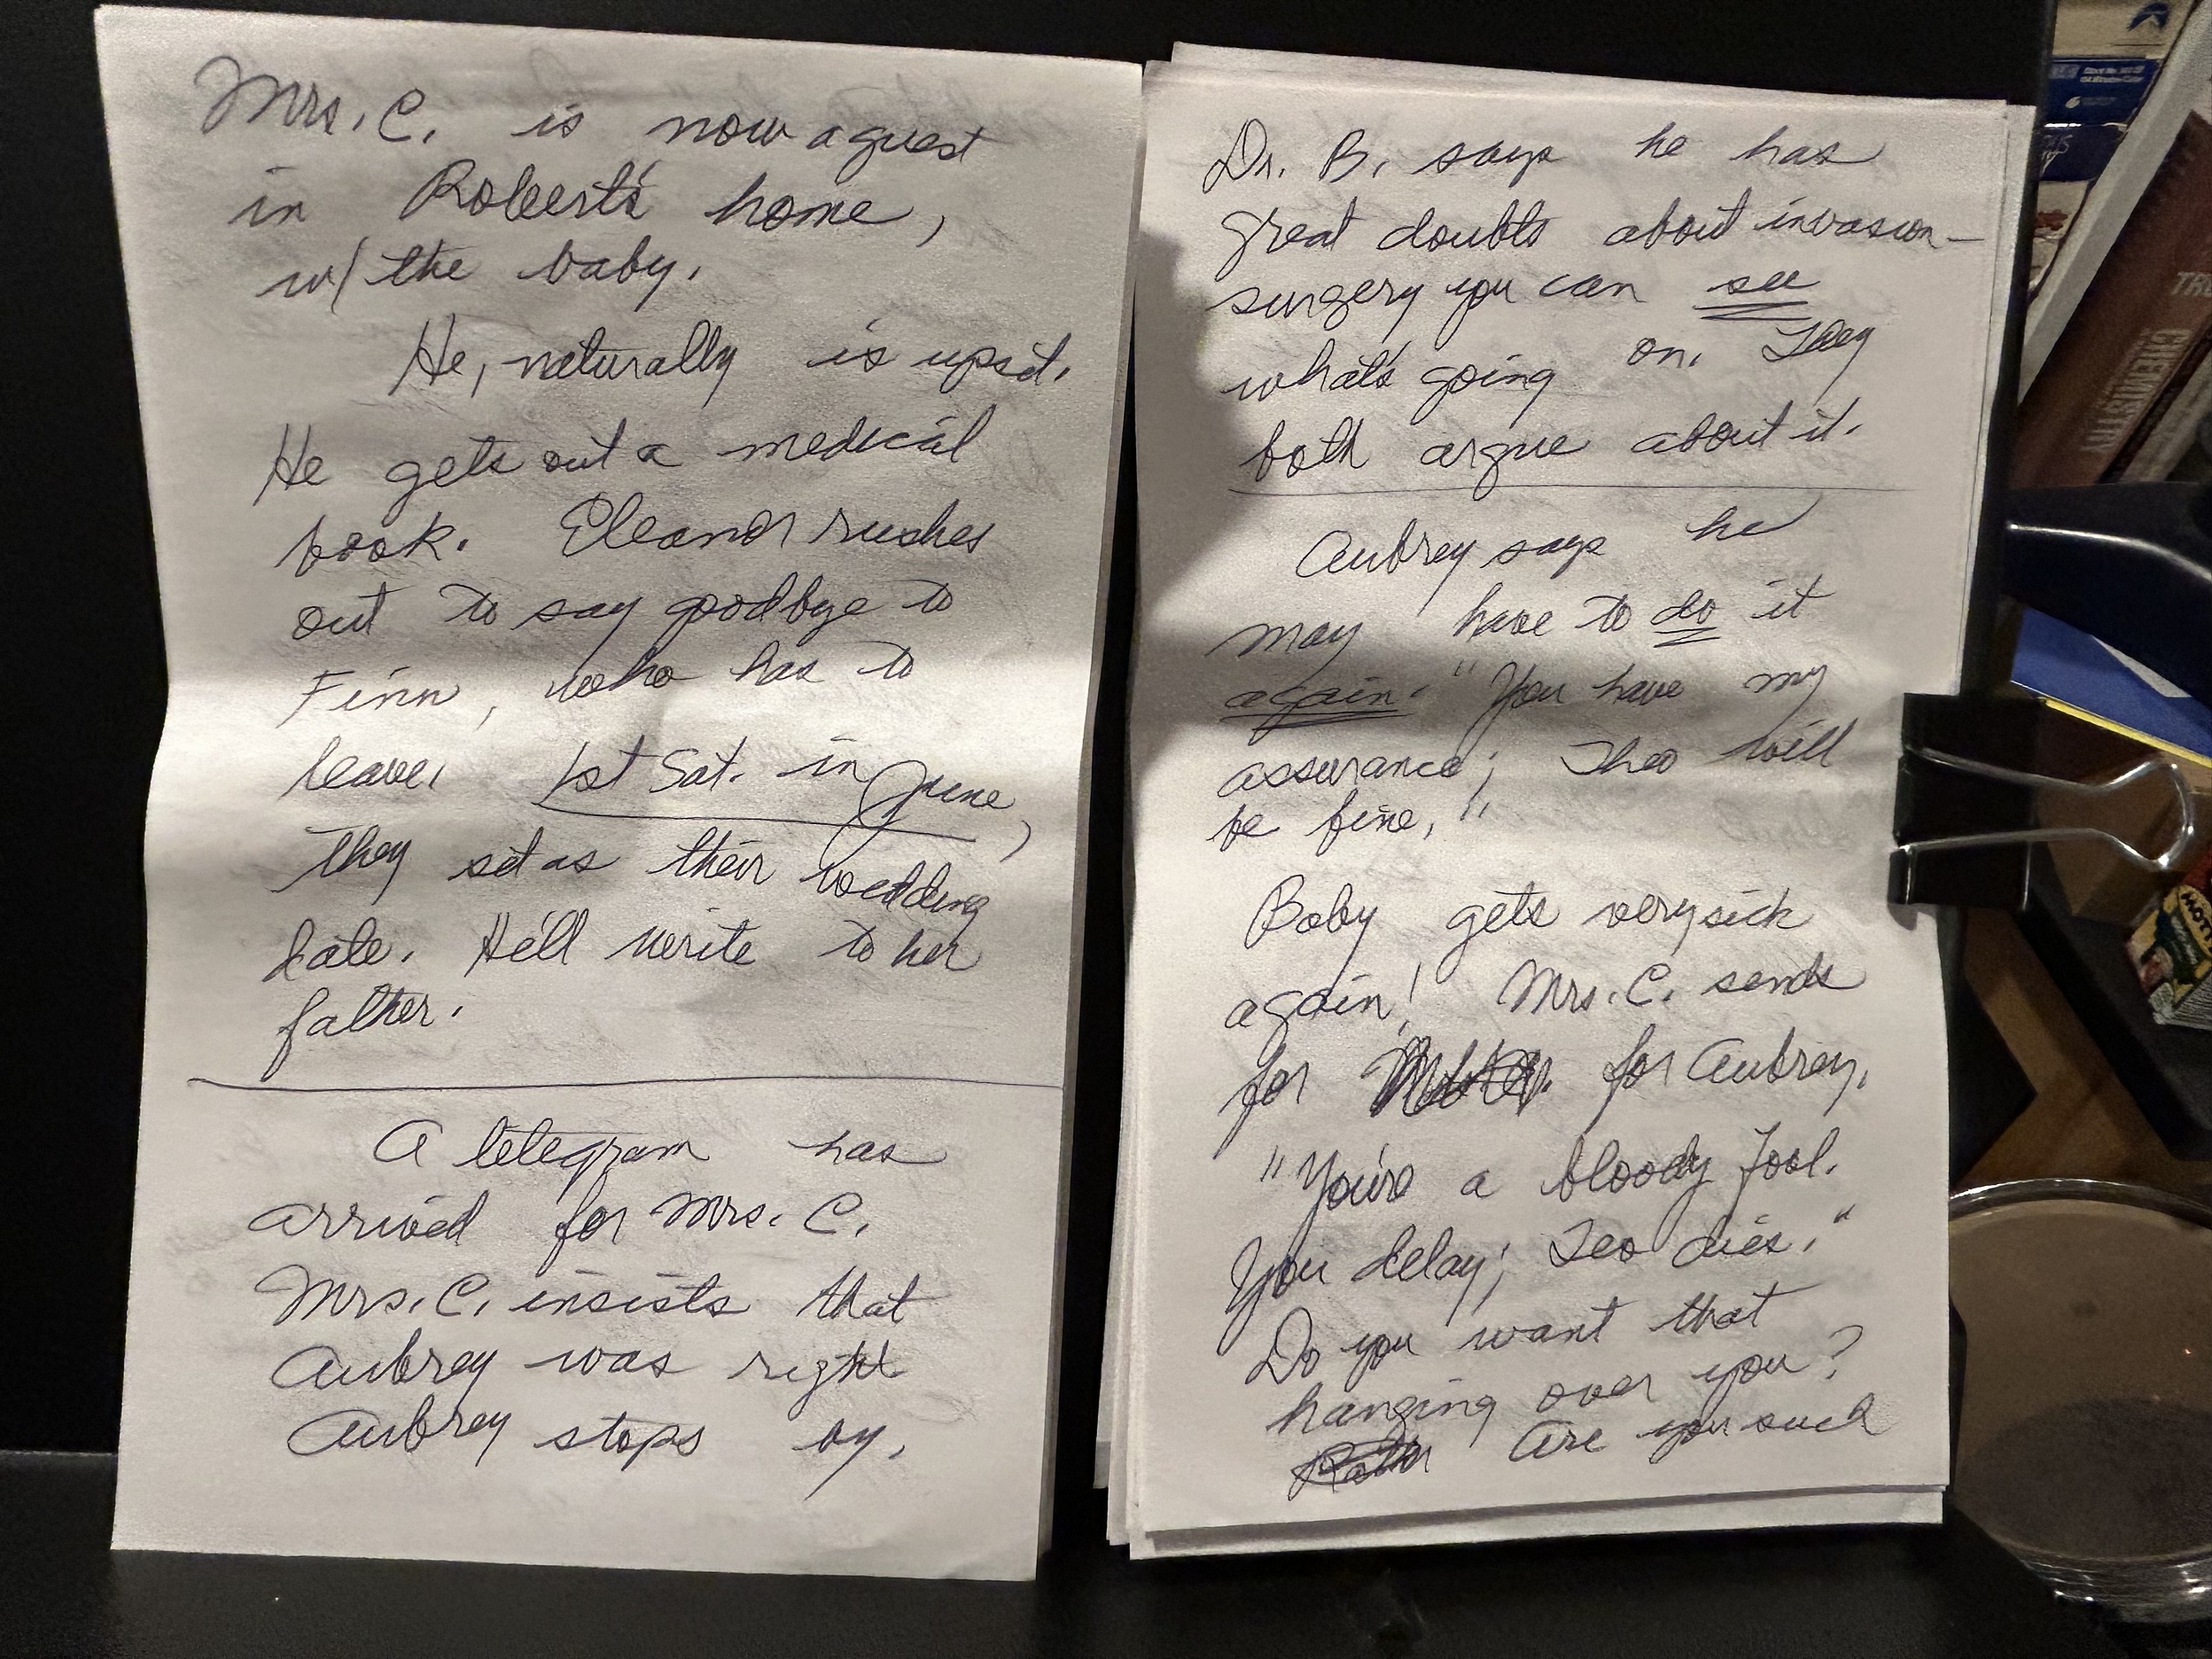 Mrs. C. is now a guest
in Robert's home,
w/ the baby.
He, naturally is upset.
He gets out a medical
book. Eleanor rushes
out to say goodbye to
Finn, who has to
leave. 1st Sat. in June,
they set as their wedding
date. He'll write to her
father.
A telegram has
arrived for Mrs. C.
Mrs. C. insists that
Aubrey was right
Aubrey stops by.
Dr. B. says he has
great doubts about invasion-
surgery you can see
what's going on. They
both argue about it.
Aubrey says he
may have to do it
again. "You have my
assurance; Theo will
be fine."
Baby gets very sick
again! Mrs. C. sends
for for Aubrey.
"You're a bloody fool.
You delay; Teo dies."
Do you want that
hanging over you?
Are you such
CHEMISTRY